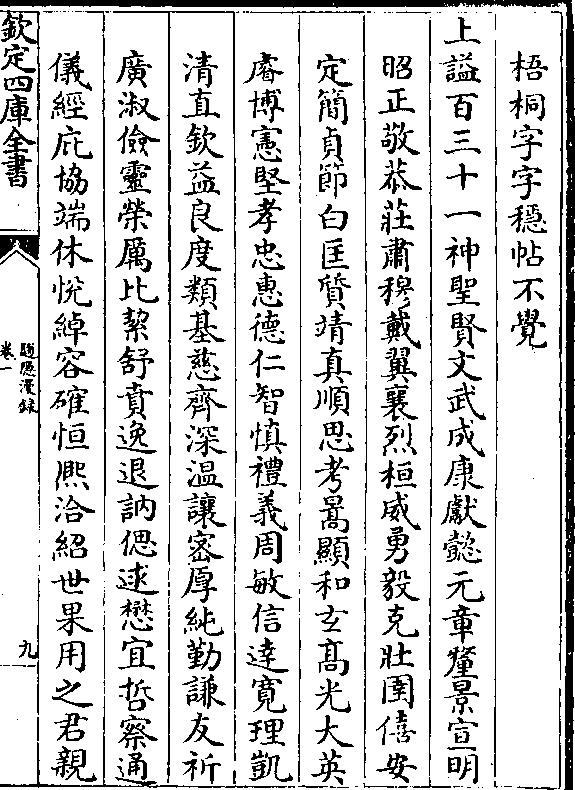 梧桐字字穩帖不覺
上謚百三十一神聖賢文武成康獻懿元章釐景宣明
昭正敬恭莊肅穆戴翼襄烈桓威勇毅克壯圉僖安
定簡貞節白匡質靖真順思考暠顯和玄髙光大英
睿博憲堅孝忠惠德仁智慎禮義周敏信達寛理凱
清直欽益良度類基慈齊深温讓密厚純勤謙友祈
廣淑儉靈榮厲比絜舒賁逸退訥偲逑懋宜哲察通
儀經庇協端休悅綽容確恒熈洽紹世果用之君親
欽定四庫全書
隨隱漫録
卷一
九